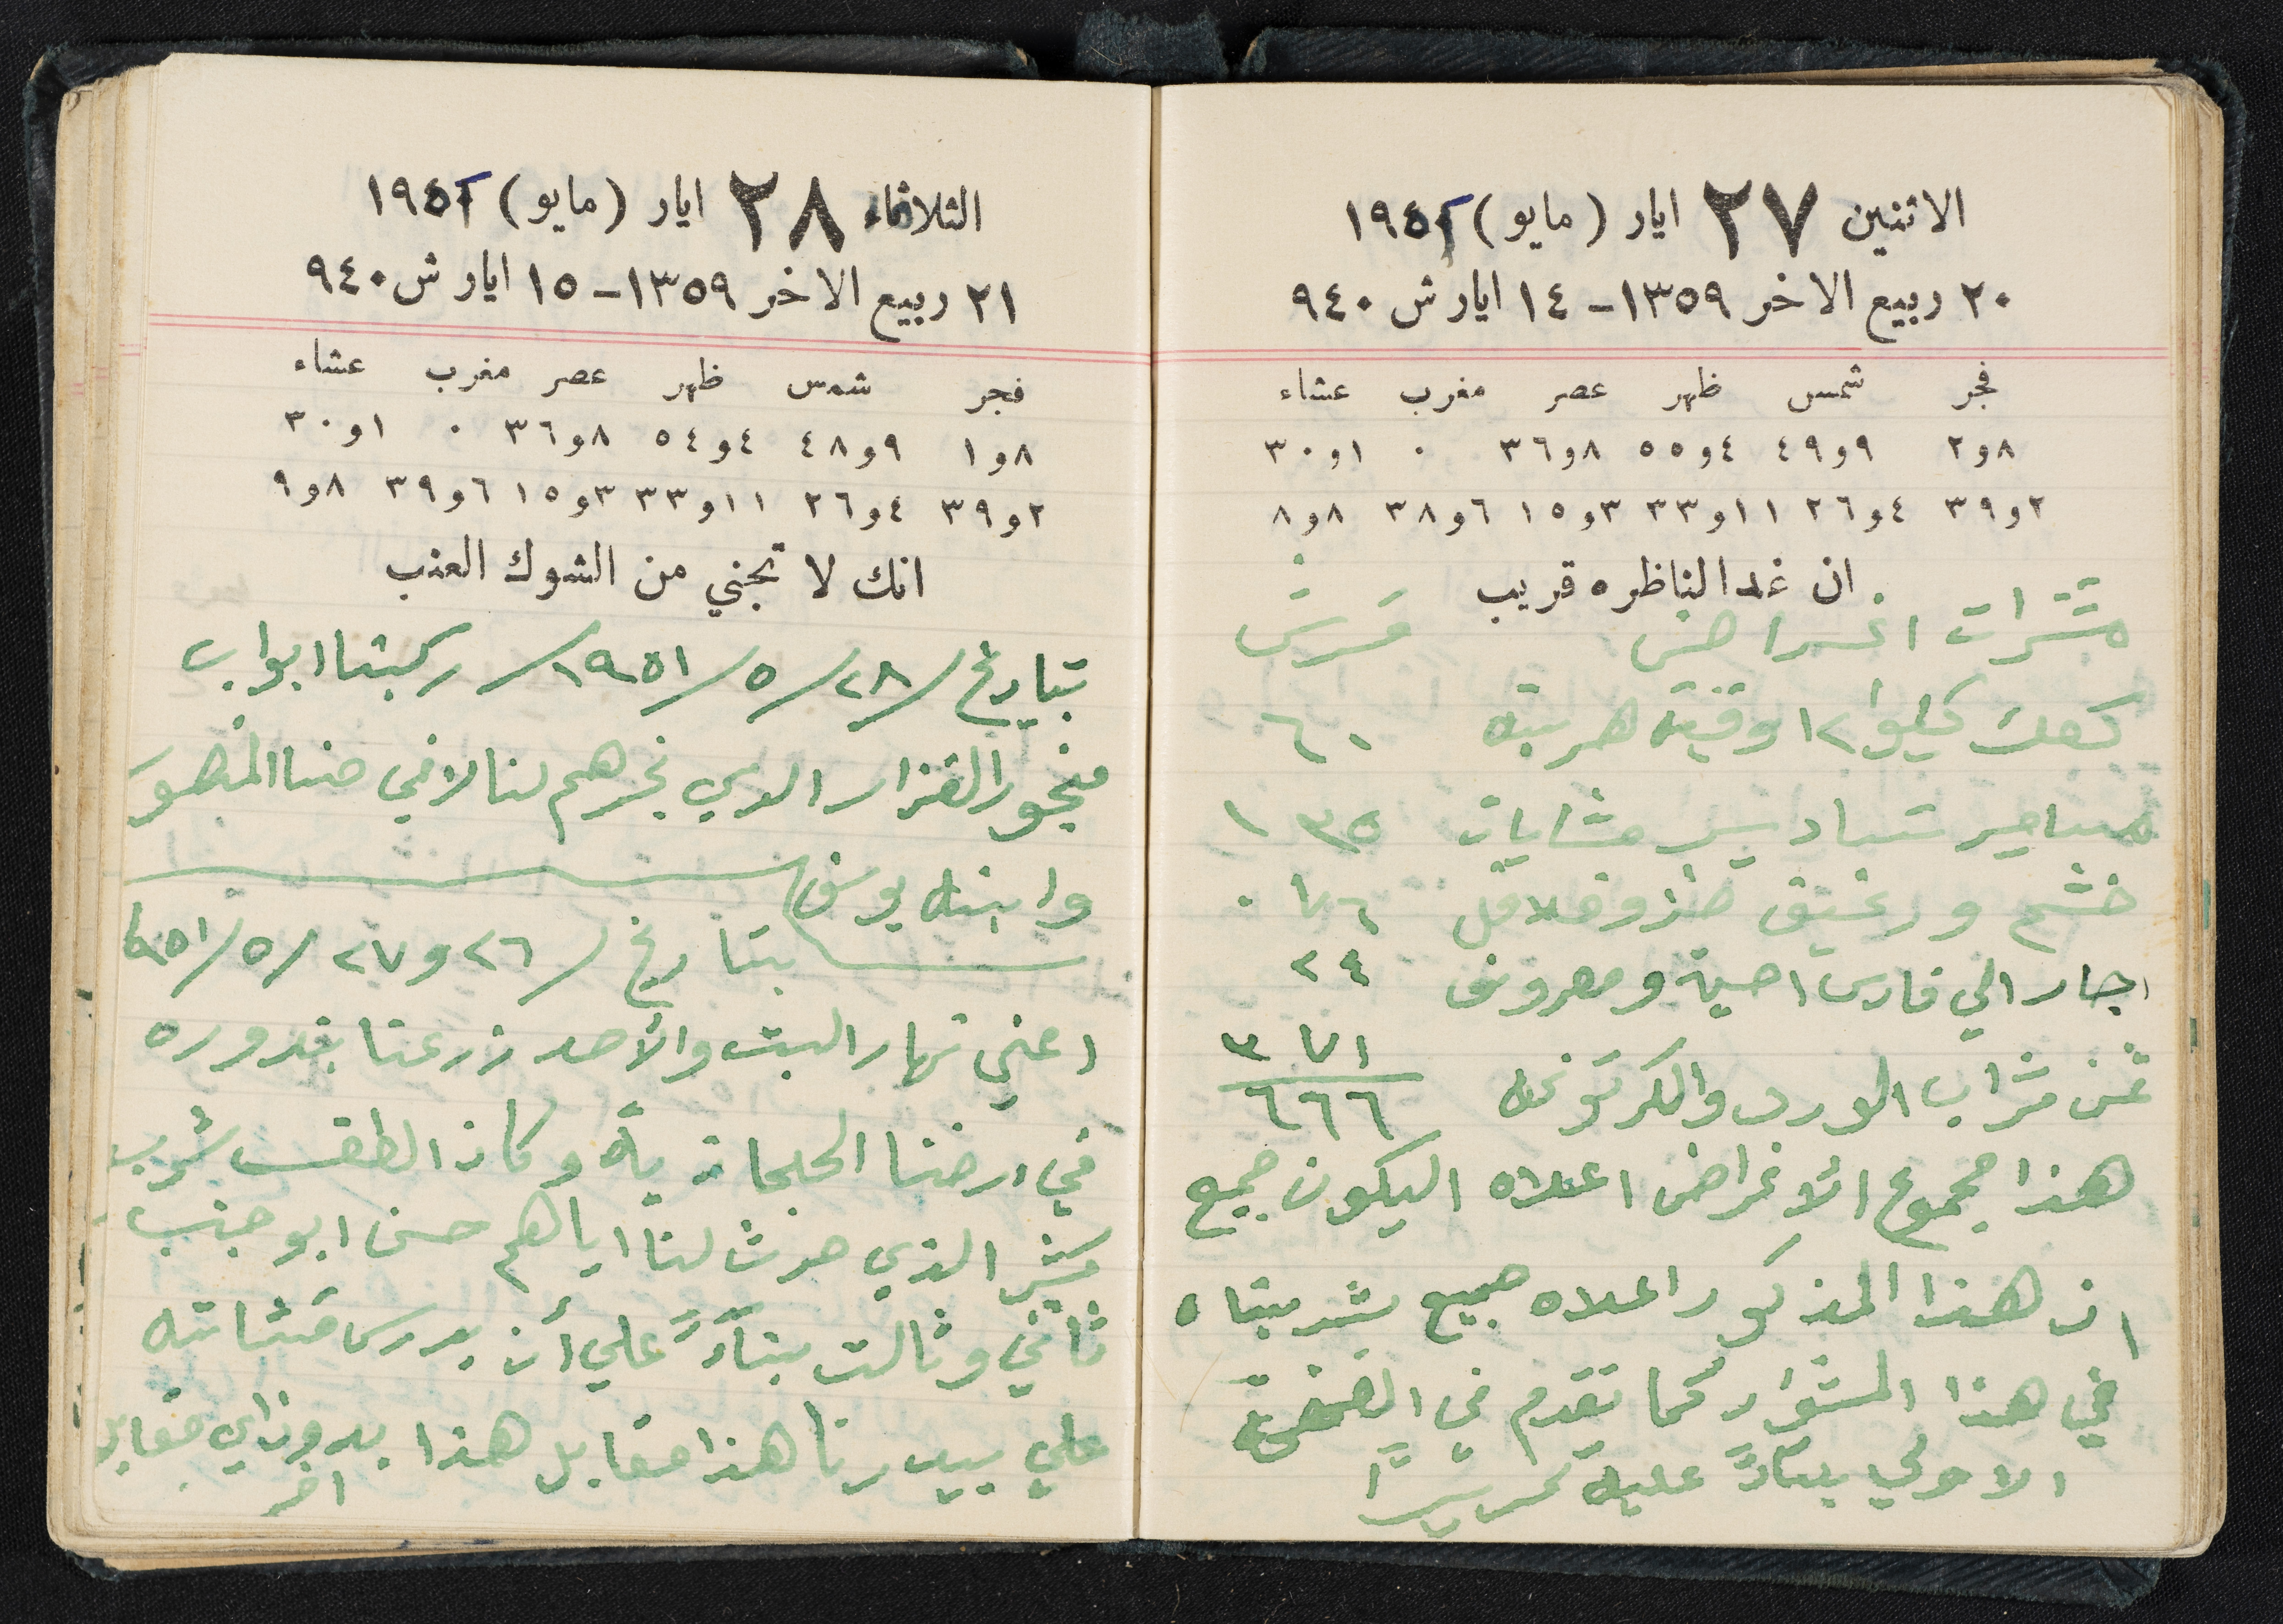 الاثنين ٢٧ ايار (مايو) ١٩٥١
٢٠ ربيع الاخر ١٣٥٩ - ١٤ ايار ش ٩٤٠
فجر شمس ظهر عصر مغرب عشاء
٨و٢ ٩و٤٩ ٤و٥٥ ٨و٣٦ ٠ ١و٣٠
٢و٣٩ ٤و٢٦ ١١و٣٣ ٣و١٥ ٦و٣٨ ٨و٨
ان غدا لناظره قريب
اغراض قرش
كعك كيلو ١٢ وقيه هريسة ٦٠
مسامير ١٣٥
ورغيف خبز وفلافل ٠٧٦
اجار الي فارس ومصروف ٢٤
ثمن شراب الورد والكرتونه ٣٧١
٦٦٦
هذا مجموع الأغراض اعلاه اليكون جميع
ان هذا المذكور اعلاه جميع شريناه
في هذا المشوار كما تقدم في الصفحة
الاولى بنآءً عليه تحريراً
الثلاثاء ٢٨ ايار (مايو) ١٩٥١
٢١ ربيع الاخر ١٣٥٩ - ١٥ ايار ش ٩٤٠
فجر شمس ظهر عصر مغرب عشاء
٨و١ ٩و٤٨ ٤و٥٤ ٨و٣٦ ٠ ١و٣٠
٢و٣٩ ٤و٢٦ ١١و٣٣ ٣و١٥ ٦و٣٩ ٨و٩
انك لا تجني من الشوك العنب
بتاريخ /٢٨/٥/١٩٥١/ ركبنا ابواب
منجور القزاز الذي نجرهم لنا حنا
وابنه يوسف
بتاريخ /٢٦و٢٧/٥/٩٥١
اعني نهار السبت والأحد زرعنا بندوره
في ارضنا وكان الطقس شوب
كثير الذي حرث لنا اياهم حسن ابو جنب
ثاني وثالث بنآءً علي أن يدرس قشاته
علي بيدرنا هذا مقابل هذا بدون اي مقابل
اخر